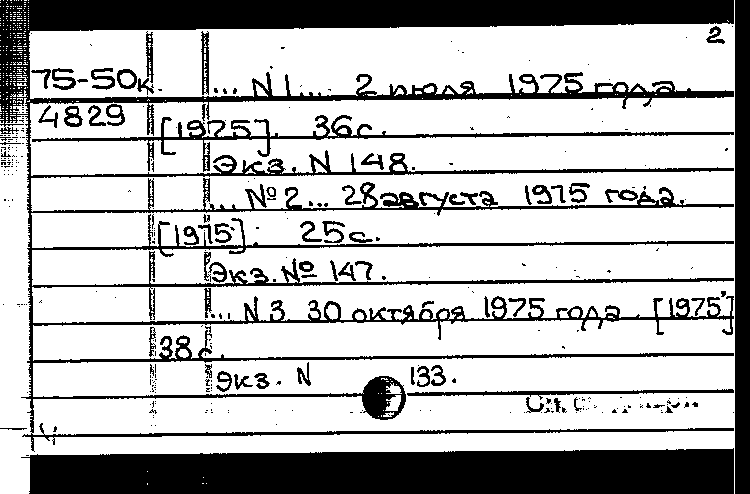 2
75-50к. ... N 1 .... 2 июля 1975 года.
4829 [1975]. 36с.
Экз. N 148.
... № 2 ... 28 августа 1975 года.
[1975]. 25с.
Экз. № 147.
... N 3 30 октября 1975 года. [1975]
38с.
Экз. N 133.
См.